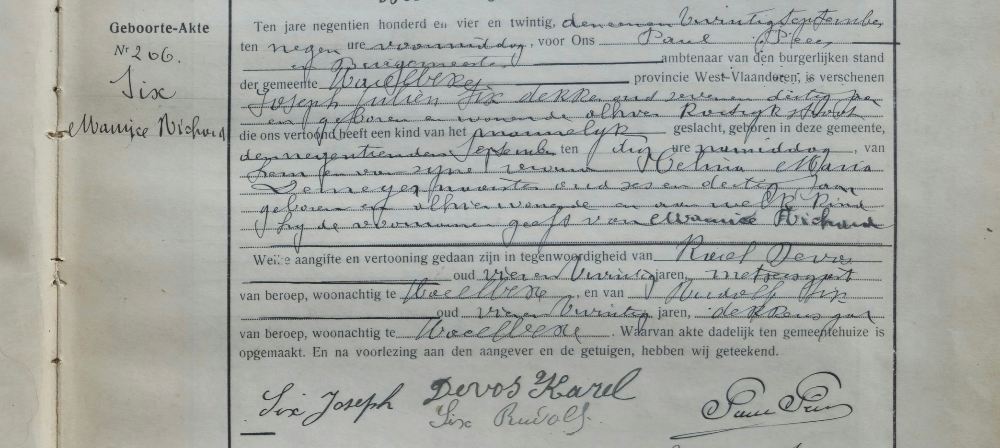 Geboorte-Akte
Nr 206.
Six
Maurice Richard
Ten jare negentien honderd en vier en twintig, den eenen twintig September
ten negen ure voormiddag, voor Ons Paul
en Burgemeester ambtenaar van den burgerlijken stand
der gemeente Waelbeke provincie West-Vlaanderen, is verschenen
Joseph Julien Six dekker oud zeven en dertig jaar
geboren en wonende alhier
die ons vertoond heeft een kind van het mannelyk geslacht, geboren in deze gemeente,
den negentienden September ten ure namiddag, van
hem en van zyne vrouw Maria
oud zes en dertig jaar
geboren en alhier wonende en aan welk kind
hy de voornamen geeft van Maurice Richard
Welke aangifte en vertooning gedaan zijn in tegenwoordigheid van Karel Devos
oud vier en twintig jaren, metsersgast
van beroep, woonachtig te en van Rudolf Six
oud vier en twintig jaren, dekkersgast
van beroep, woonachtig te . Waarvan akte dadelijk ten gemeentehuize is
opgemaakt. En na voorlezing aan den aangever en de getuigen, hebben wij geteekend.
Six Joseph Devos Karel
Six Rudolf